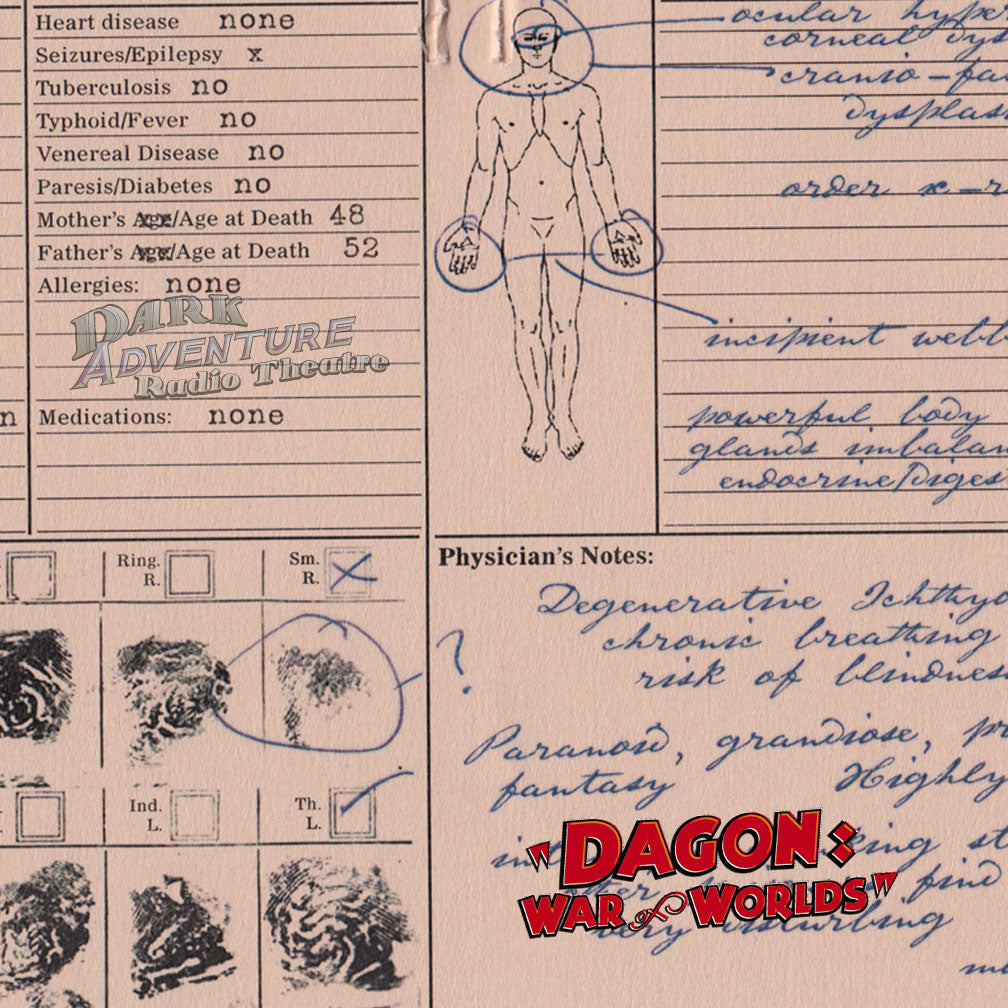 Heart disease none
Seizures/Epilepsy x
Tuberculosis no
Typhoid/Fever no
Venereal Disease no
Paresis/Diabetes no
Mother's Age/Age at Death 48
Father's Age/Age at Death 52
Allergies: none
DARK
ADVENTURE
Radio Theatre
n Medications: none
ocular hype
corneal dys
cranio-fa
dysplas
order x-r
incipient webb
powerful body
glands imbalan
endocrine/Diges
Ring. R.
Sm. R.
Ind. L.
Th. L.
?
Physician's Notes:
Degenerative Ichthy
chronic breathing
risk of blindnes
Paranoid, grandiose, p
fantasy Highly
int king st
other find
very disturbing
"DAGON:
WAR of WORLDS"